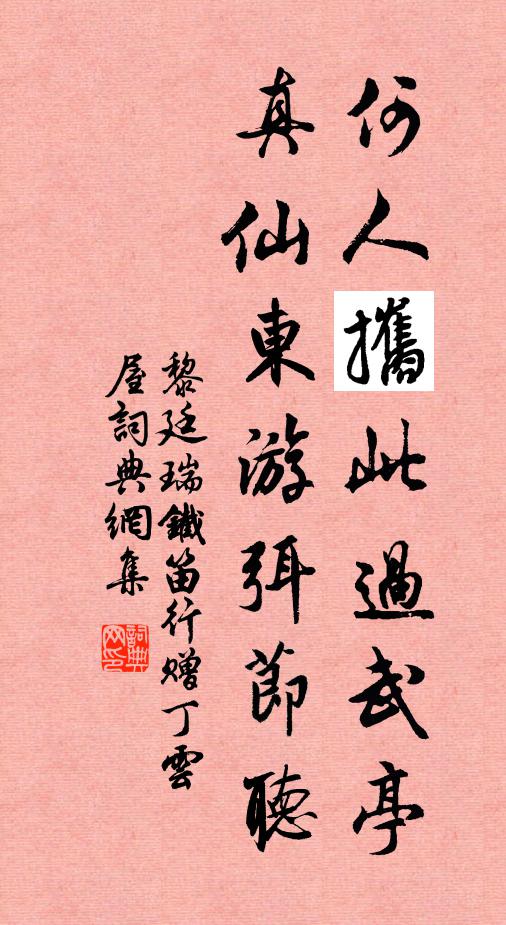 何人攜此過武亭
真仙東游弭節聽
黎廷瑞鐵笛行贈丁雲
屋詞典網集
詞典網印